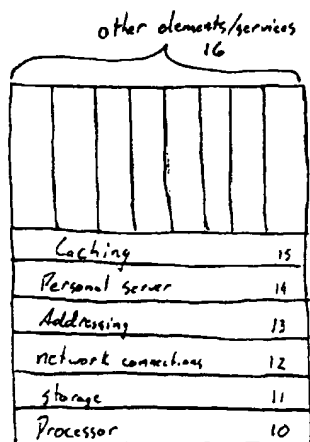 other elements/services
16
Caching 15
Personal server 14
Addressing 13
network connections 12
storage 11
Processor 10